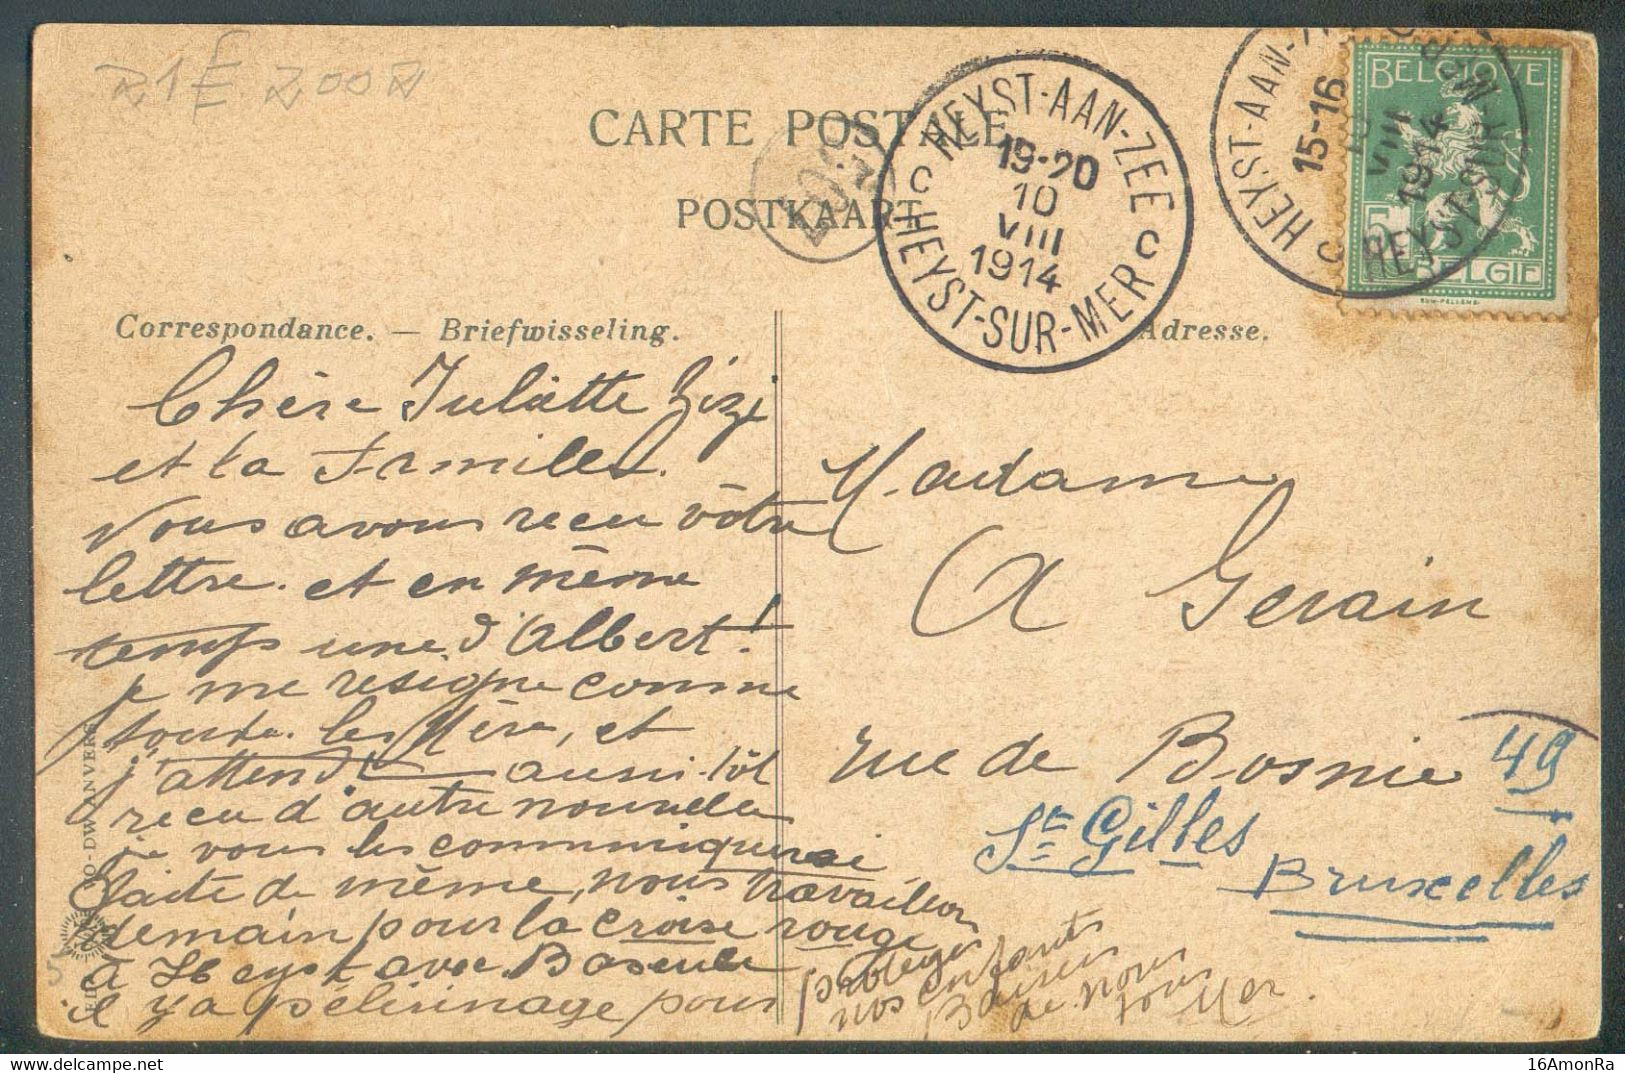 21 £ 2008
CARTE POSTALE
POSTKAART
HEYST-AAN-ZEE
19-20
10
VIII
1914
HEYST-SUR-MER
HEYST-AAN-
15-16
10
VIII
1914
HEYST-SUR-MER
BELGIQUE
5
BELGIË
Correspondance. — Briefwisseling.
Adresse.
Chère Juliette Zizi
et la Famille
Nous avons recu vôtre
lettre. et en même
temps une d'Albert!
je me resigne comme
toute les Mère, et
j'attend aussi-tôt
recu d'autre nouvelle
je vous les communiquerai
faite de même, nous travaillon
demain pour la croise rouge
à Heyst avec
il y a pélérinage pour
proteger
nos enfants
Baisers
de nous
tous
Mer.
Madame
A Gerain
rue de Bosnie 49
St Gilles
Bruxelles
16AmonRa
delcampe.net